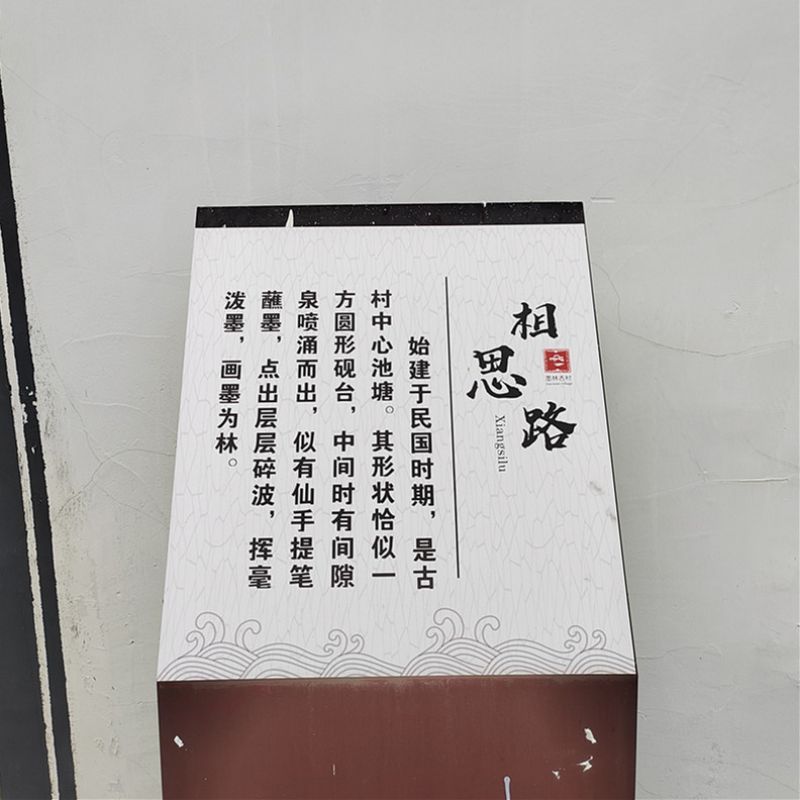 相思路
Xiangsilu
墨林古村
始建于民国时期，是古
村中心池塘。其形状恰似一
方圆形砚台，中间时有间隙
泉喷涌而出，似有仙手提笔
蘸墨，点出层层碎波，挥毫
泼墨，画墨为林。